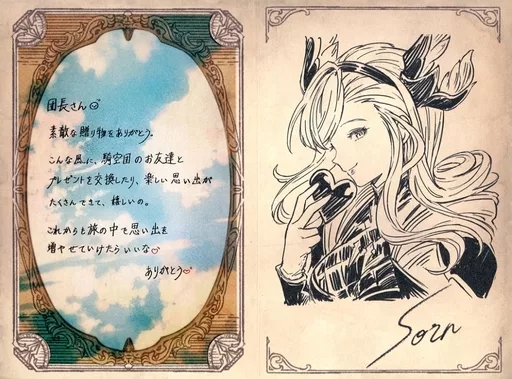 団長さん
素敵な贈り物をありがとう。
こんな風に、騎空団のお友達と
プレゼントを交換したり、楽しい思い出が
たくさんできて、嬉しいの。
これからも旅の中で思い出を
増やせていけたらいいな
ありがとう
Sorn